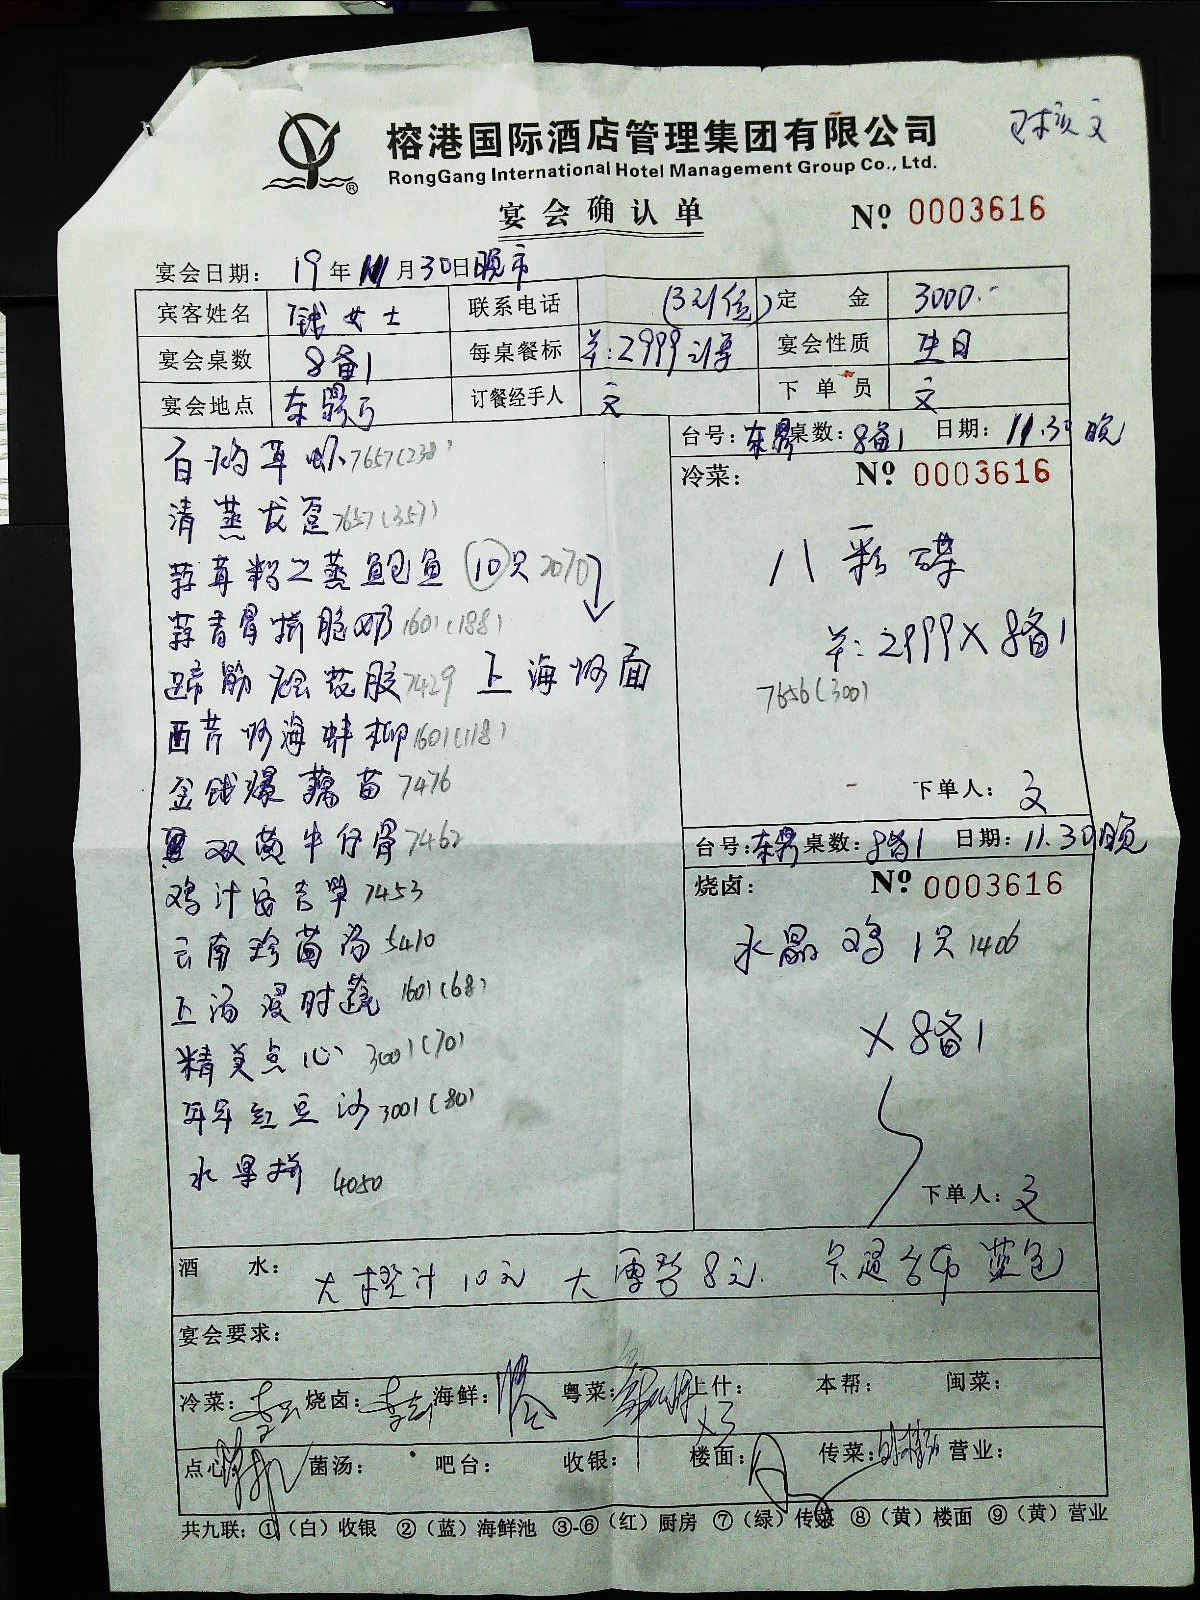 已核 文
榕港国际酒店管理集团有限公司
RongGang International Hotel Management Group Co., Ltd.
宴会确认单
№ 0003616
宴会日期: 19年11月30日晚市
宾客姓名 钱女士 联系电话 定金 3000.-
宴会桌数 8备1 每桌餐标 羊:2999 宴会性质 生日
宴会地点 东 订餐经手人 文 下单员 文
台号: 东 桌数: 8备1 日期: 11.30晚
冷菜: № 0003616
八彩碟
羊:2999×8备1
7656(300)
下单人: 文
白灼 虾 7657(238)
清蒸 7657(357)
蒜茸粉丝蒸鲍鱼 10只 2070
蒜香骨拼脆奶 1601(188)
蹄筋烩花胶 7429 上海炒面
西芹炒海蚌柳 1601(118)
金钱爆藕苗 7476
双黄牛仔骨 7462
鸡汁百吉 7453
云南珍菌汤 5410
上汤浸时蔬 1601(68)
精美点心 3001(70)
红豆沙 3001(80)
水果拼 4050
台号: 东 桌数: 8备1 日期: 11.30晚
烧卤: № 0003616
水晶鸡 1只 1406
×8备1
下单人: 文
酒水: 大橙汁10元 大 8元. 卡通台布 蓝色
宴会要求:
冷菜: 烧卤: 海鲜: 粤菜: 上什: ×3 本帮: 闽菜:
点心 菌汤: 吧台: 收银: 楼面: 传菜: 营业:
共九联: ①(白)收银 ②(蓝)海鲜池 ③-⑥(红)厨房 ⑦(绿)传菜 ⑧(黄)楼面 ⑨(黄)营业